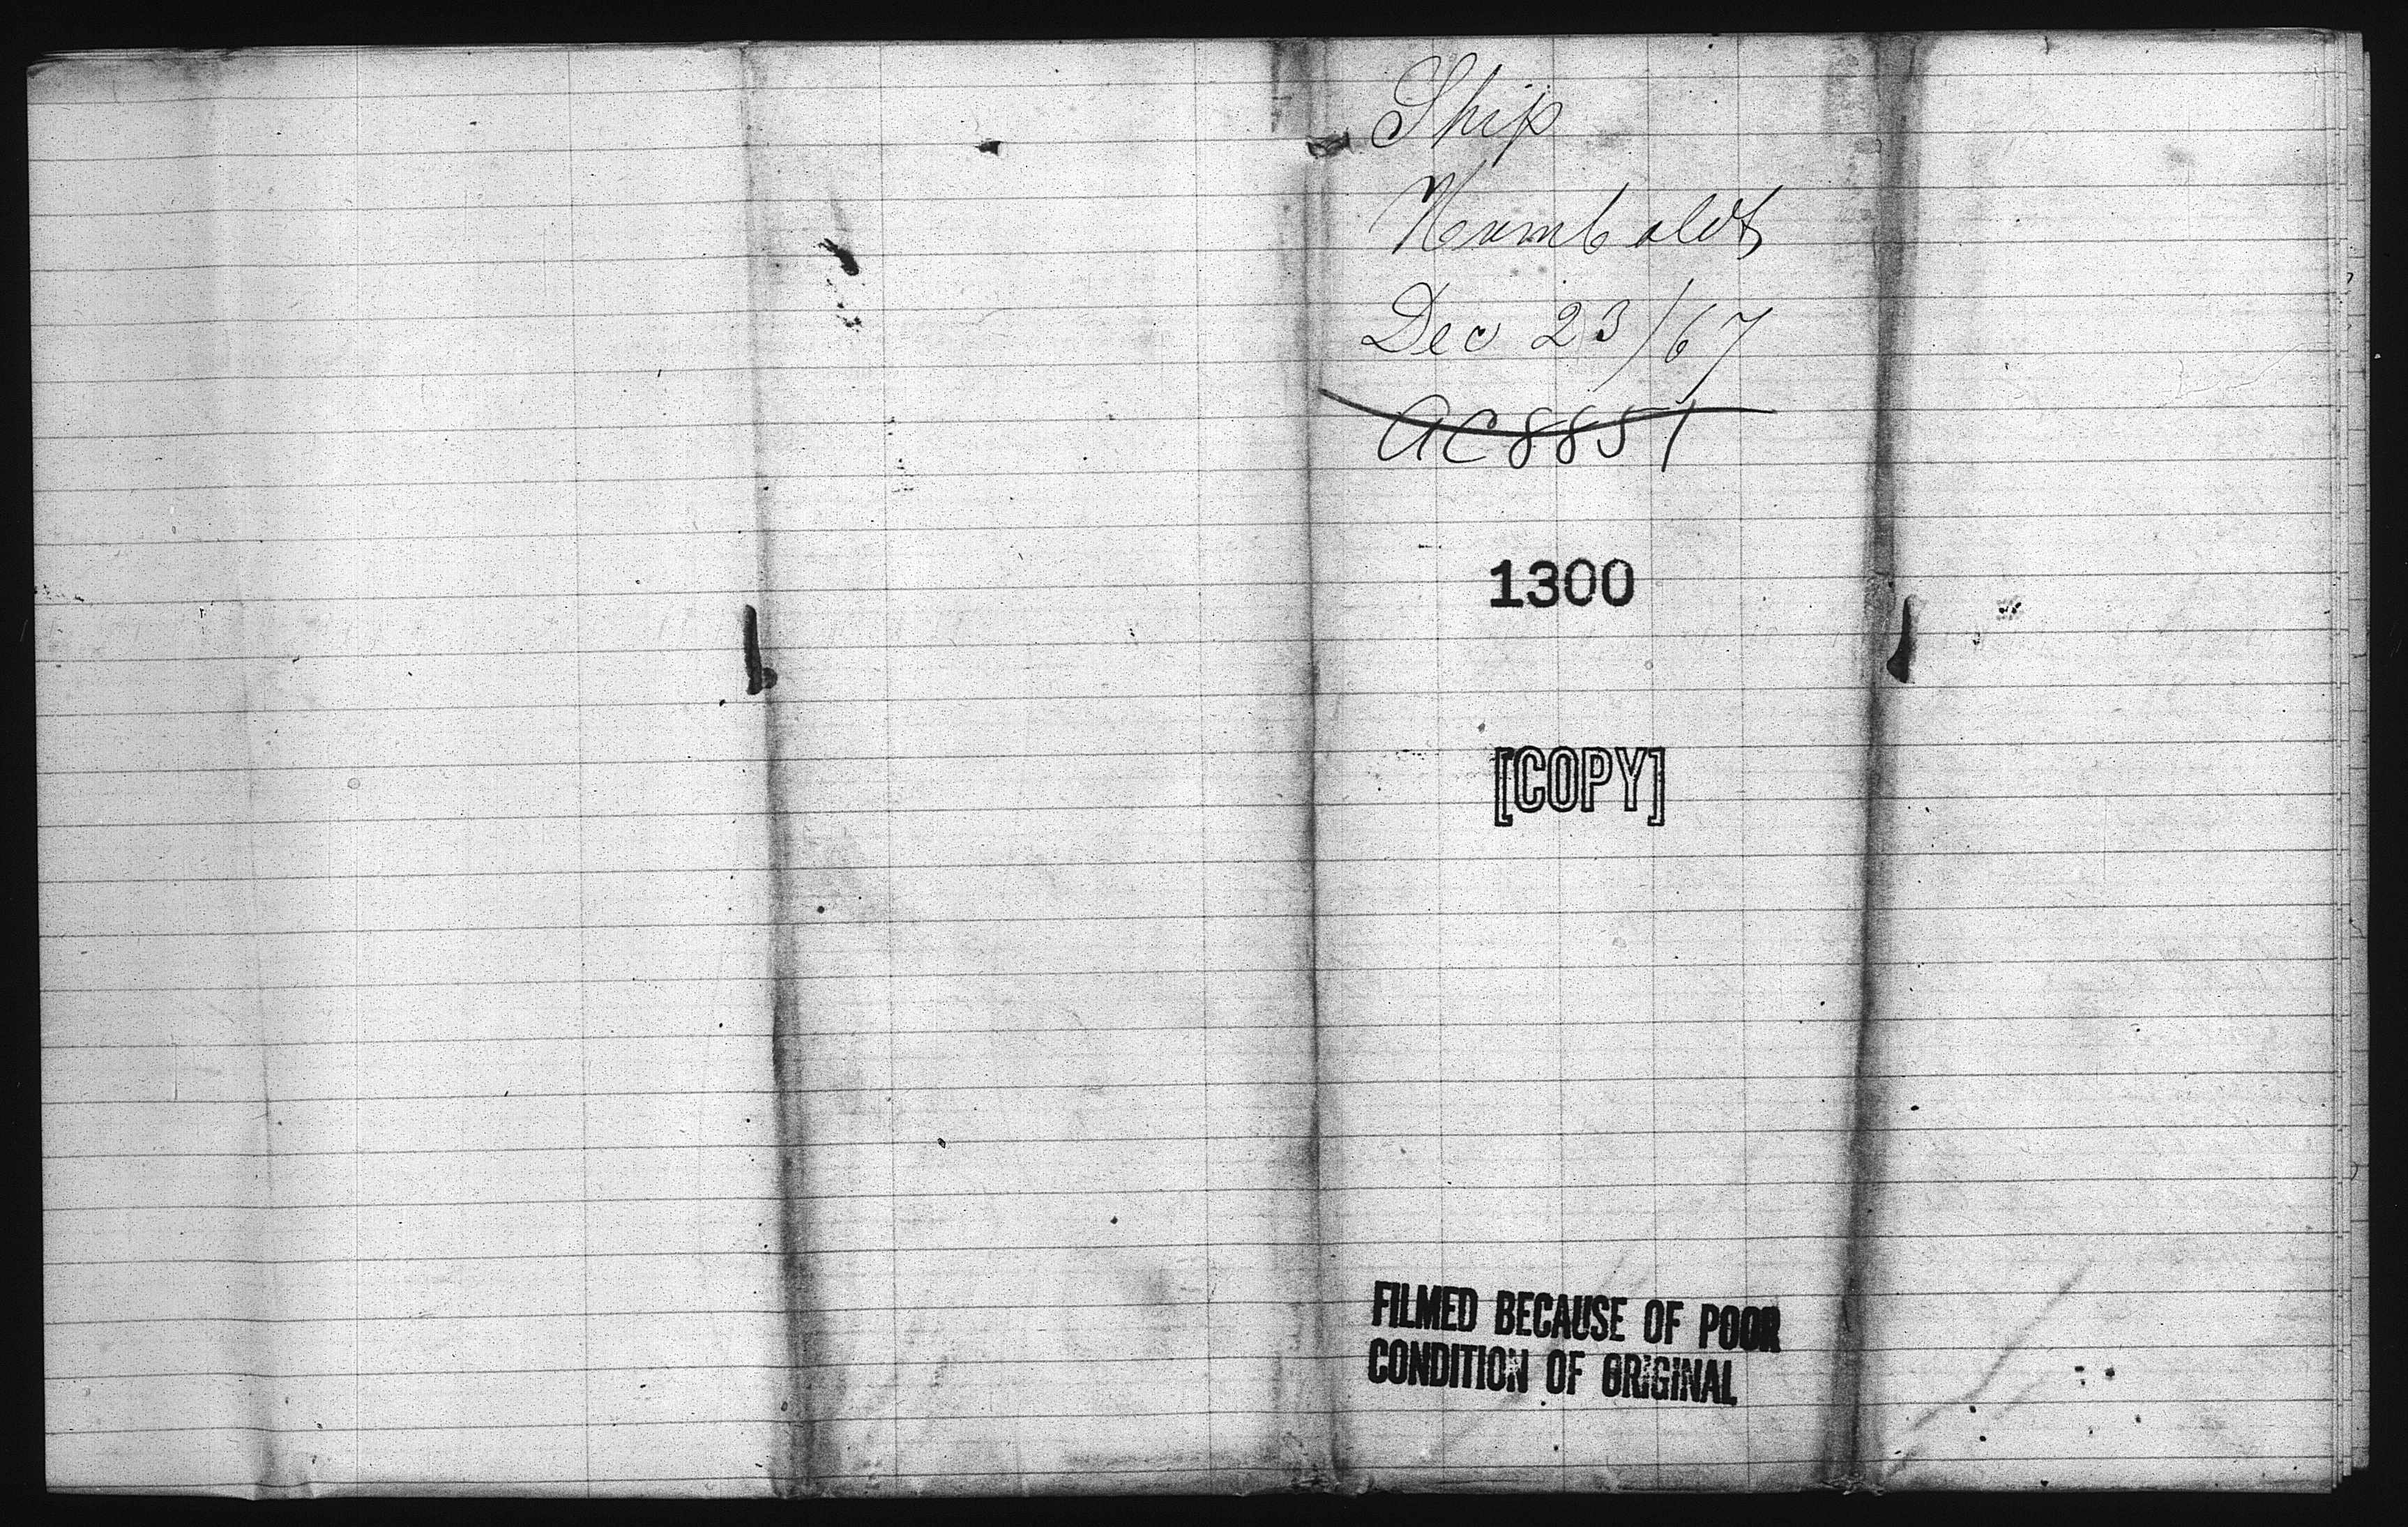 Ship
Humboldt
Dec 23/67
AC8851
1300
[COPY]
FILMED BECAUSE OF POOR
CONDITION OF ORIGINAL